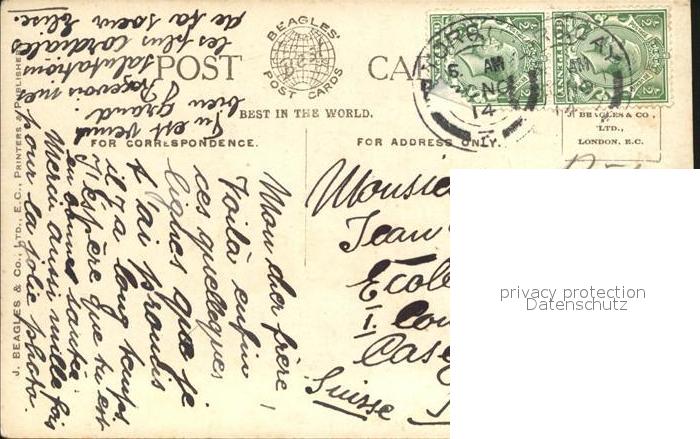 BEAGLES'
POST CARDS
POST CAR
BEST IN THE WORLD.
FOR CORRESPONDENCE.
FOR ADDRESS ONLY.
BEAGLES & CO.,
LTD.,
LONDON, E.C.
J. BEAGLES & Co., LTD., E.C., PRINTERS & PUBLISHERS
6 AM
JN
14
Mon cher frère,
Voilà enfin
ces quelques
lignes que je
t'ai promis
il y a long temps
J'espère que tu est
en bonne santée.
Merci aussi mille fois
pour la jolie photo.
Tu est venu
bien grand.
Reçevoir mes
salutations
les plus cordiales
de ta soeur Elise.
Monsie
Jean
Ecole
I. Cou
Case
Suisse
privacy protection
Datenschutz